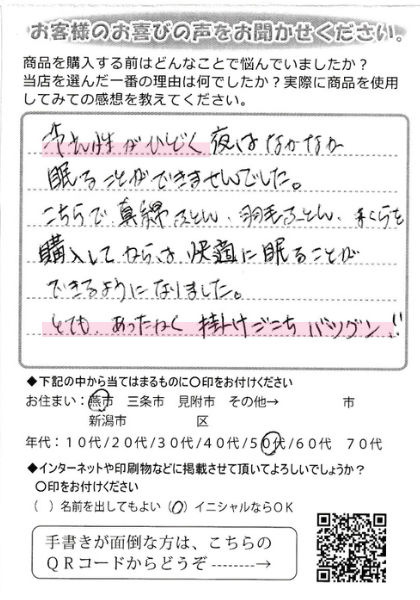 お客様のお喜びの声をお聞かせください。
商品を購入する前はどんなことで悩んでいましたか?
当店を選んだ一番の理由は何でしたか?実際に商品を使用
してみての感想を教えてください。
冷え性がひどく 夜はなかなか
眠ることができませんでした。
こちらで真綿ふとん、羽毛ふとん、まくらを
購入してからは、快適に眠ることが
できるようになりました。
とても あったかく 掛けごこち バツグン!!
◆下記の中から当てはまるものに○印をお付けください
お住まい: 燕市 三条市 見附市 その他→ 市
新潟市 区
年代:10代/20代/30代/40代/50代/60代 70代
◆インターネットや印刷物などに掲載させて頂いてよろしいでしょうか?
○印をお付けください
( )名前を出してもよい (○)イニシャルならOK
手書きが面倒な方は、こちらの
QRコードからどうぞ -------→